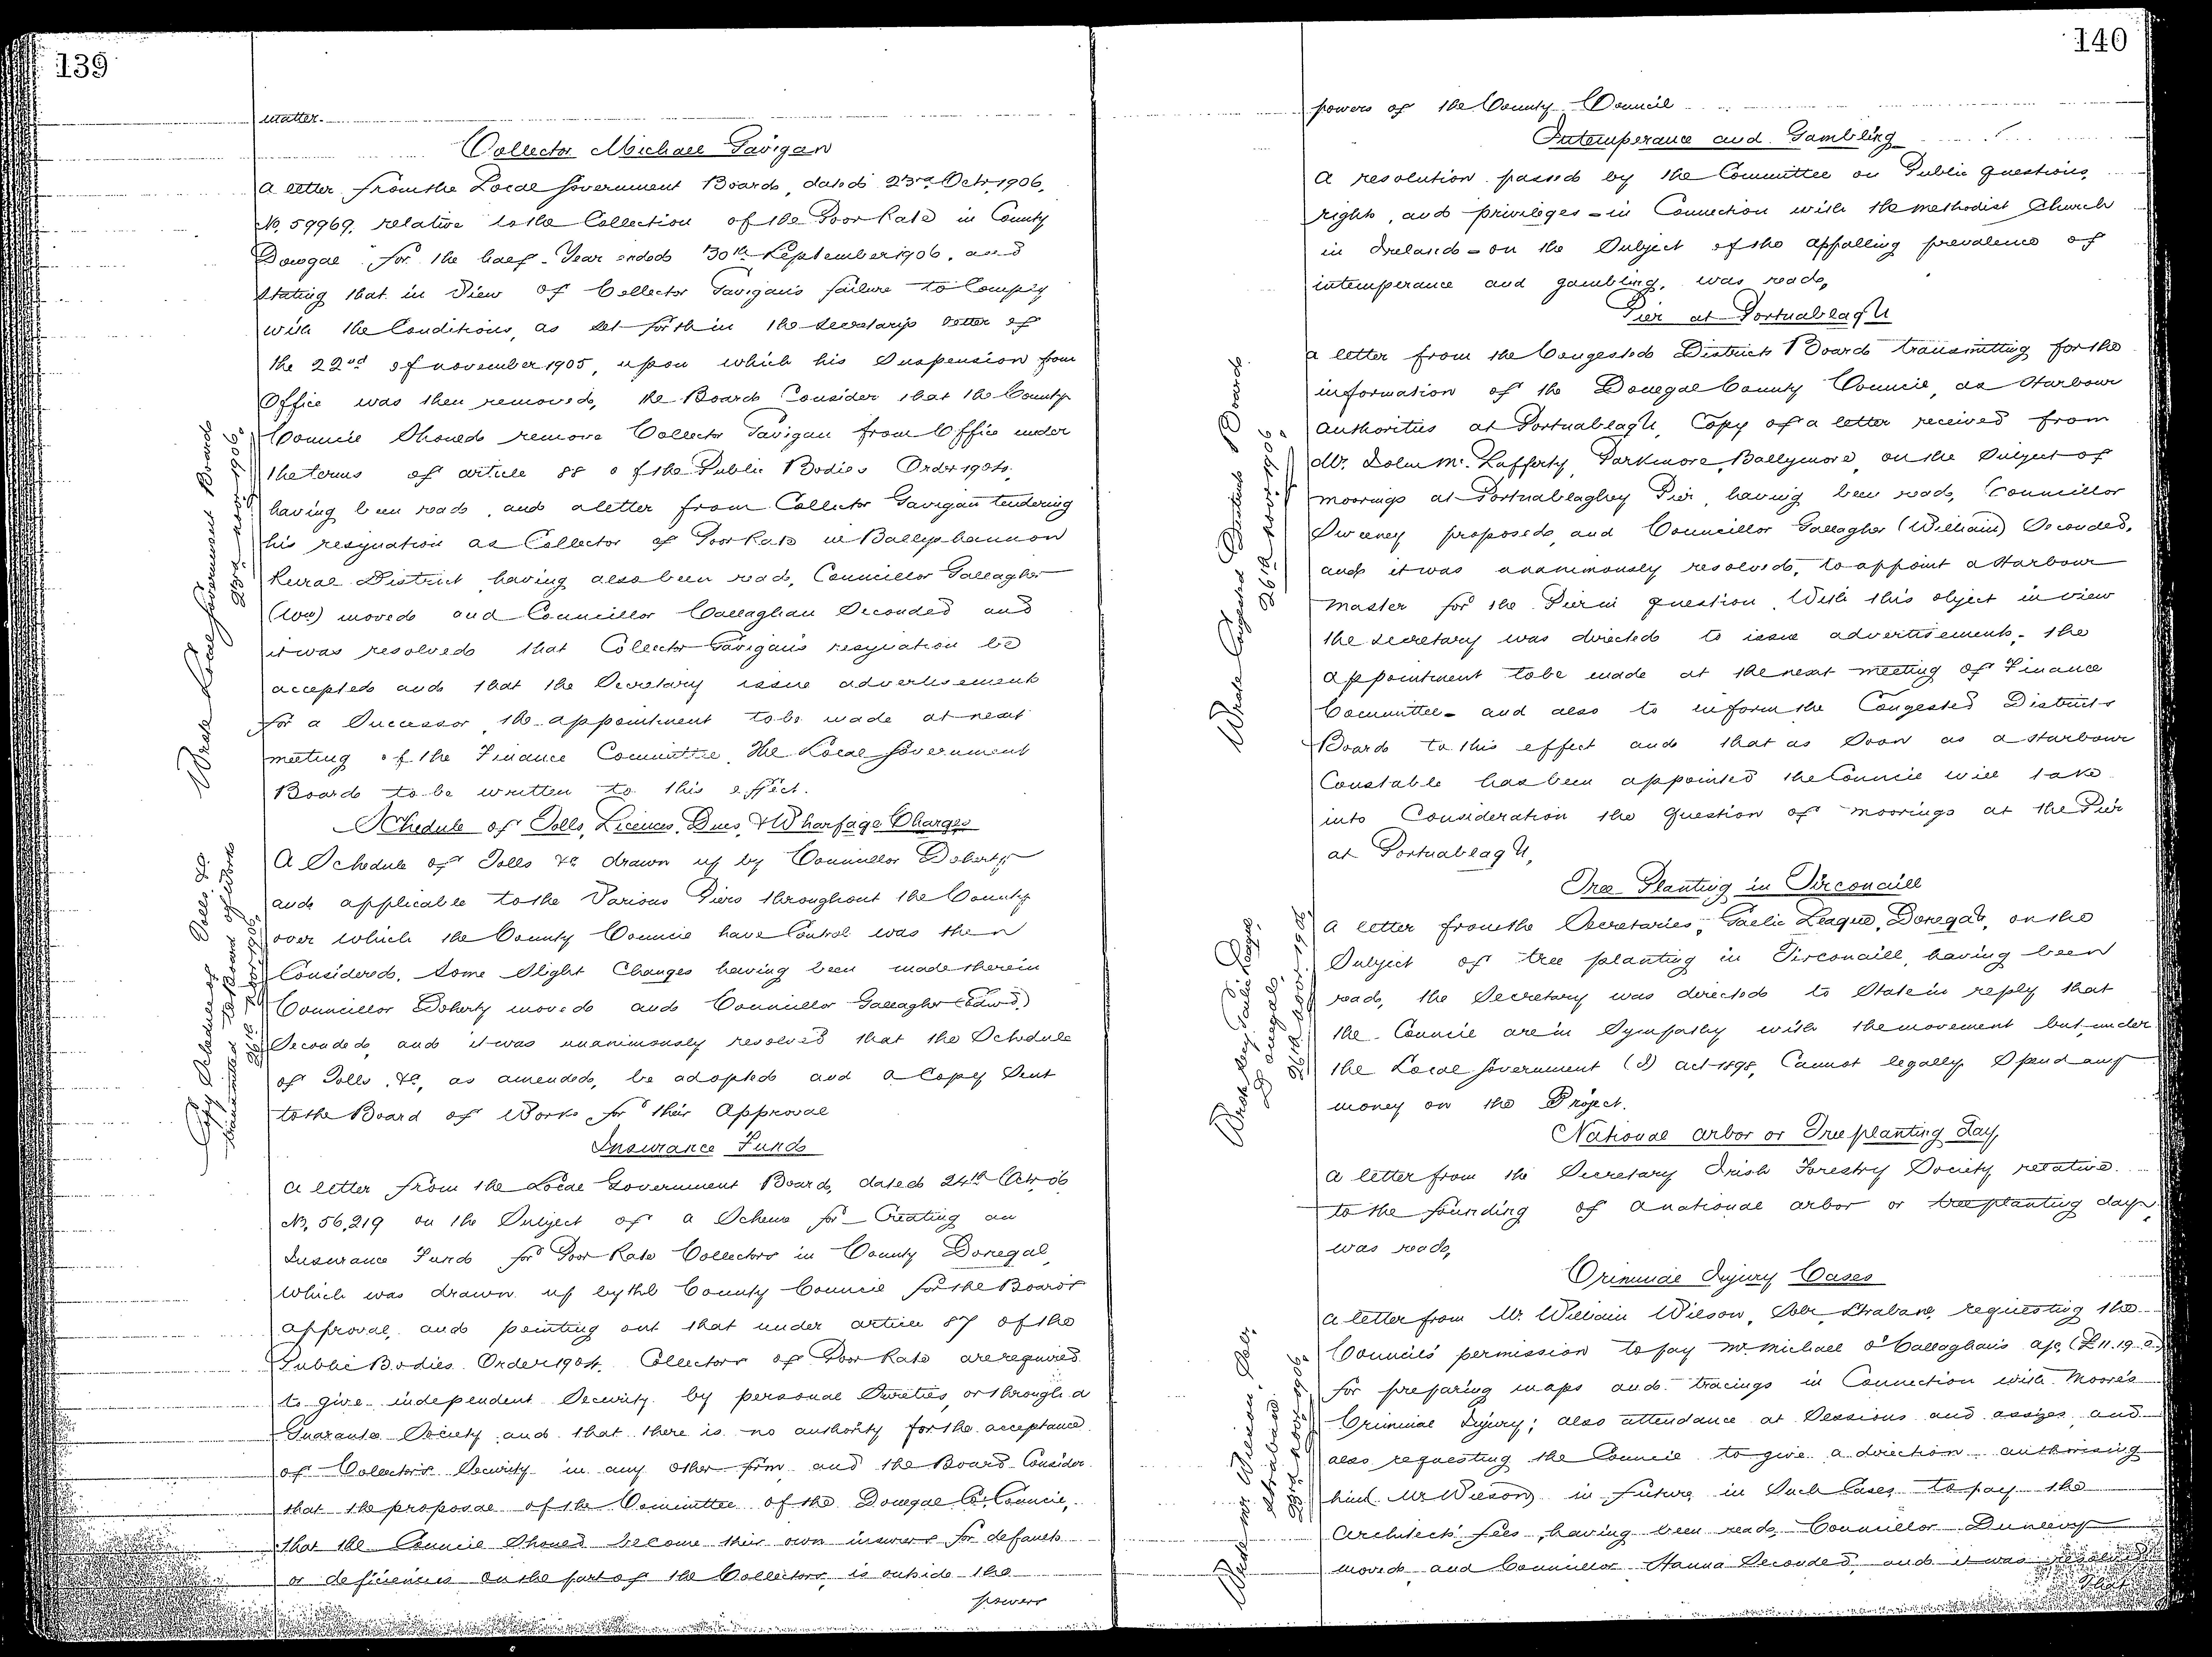 139
matter.
Collector Michael Gavigan
A letter from the Local Government Board, dated 23rd Octr. 1906,
No. 59969, relative to the Collection of the Poor Rate in County
Donegal for the half-Year ended 30th September 1906, and
stating that in View of Collector Gavigan's failure to Comply
with the Conditions, as set forth in the Secretary's letter of
the 22nd of november 1905, upon which his Suspension from
Office was then removed, the Board Consider that the County
Council Should remove Collector Gavigan from Office under
the terms of article 88 of the Public Bodies Order 1904,
having been read, and a letter from Collector Gavigan tendering
his resignation as Collector of Poor Rate in Ballyshannon
Rural District, having also been read, Councillor Gallagher
(Wm) moved and Councillor Callaghan Seconded and
it was resolved that Collector Gavigan's resignation be
accepted and that the Secretary issue advertisement
for a Successor, the appointment to be made at next
meeting of the Finance Committee. The Local Government
Board to be written to this effect.
Wrote Local Government Board
23rd novr. 1906.
Schedule of Tolls, Licences, Dues, & Wharfage Charges
A Schedule of Tolls &c drawn up by Councillor Doherty
and applicable to the Various Piers throughout the County
over which the County Council have Control was then
Considered. Some Slight Changes having been made therein
Councillor Doherty moved and Councillor Gallagher (Edwd.)
Seconded, and it was unanimously resolved that the Schedule
of Tolls, &c, as amended, be adopted and a Copy Sent
to the Board of Works for their Approval
Copy Schedule of Tolls &c
transmitted to Board of Works
26th Novr. 1906.
Insurance Fund
A letter from the Local Government Board, dated 24th Octr. 06
No. 56,219 on the Subject of a Scheme for Creating an
Insurance Fund for Poor Rate Collectors in County Donegal,
which was drawn up by the County Council for the Board's
approval, and pointing out that under article 87 of the
Public Bodies Order 1904, Collectors of Poor Rate are required
to give independent Security by personal Sureties, or through a
Guarantee Society and that there is no authority for the acceptance
of Collector's Security in any other form and the Board Consider
that the proposal of the Committee of the Donegal Co. Council,
that the Council Should become their own insurers for defaults
or deficiencies on the part of the Collectors, is outside the
powers
140
powers of the County Council
Intemperance and Gambling
A resolution passed by the Committee on Public questions,
rights, and privileges - in Connection with the methodist Church
in Ireland - on the Subject of the appalling prevalence of
intemperance and gambling, was read,
Pier at Portnablagh
a letter from the Congested Districts Board transmitting for the
information of the Donegal County Council, as Harbour
authorities at Portnablagh, Copy of a letter received from
Mr. John Mc. Lafferty, Parkmore, Ballymore, on the Subject of
moorings at Portnablaghy Pier, having been read, Councillor
Sweeney proposed, and Councillor Gallagher (William) Seconded,
and it was unanimously resolved, to appoint a Harbour
master for the Pier in question. With this object in view
the Secretary was directed to issue advertisement - the
appointment to be made at the next meeting of Finance
Committee - and also to inform the Congested Districts
Board to this effect and that as Soon as a Harbour
Constable has been appointed the Council will take
into Consideration the question of moorings at the Pier
at Portnablagh,
Wrote Congested Districts Board
26th novr. 1906.
Tree Planting in Tirconaill
a letter from the Secretaries, Gaelic League, Donegal, on the
Subject of tree planting in Tirconaill, having been
read, the Secretary was directed to State in reply that
the Council are in Sympathy with the movement but under
the Local Government (I) act 1898, Cannot legally Spend any
money on the Project.
Wrote Secy. Gaelic League,
Donegal,
26th novr. 1906.
National arbor or Tree planting day,
a letter from the Secretary Irish Forestry Society relative
to the founding of a national arbor or tree planting day
was read,
Criminal Injury Cases
a letter from Mr. William Wilson, Solr. Strabane, requesting the
Council's permission to pay Mr. Michael O'Callaghan's a/c (£11.19.2)
for preparing maps and tracings in Connection with Moore's
Criminal Injury; also attendance at Sessions and assizes, and
also requesting the Council to give a direction authorising
him (Mr Wilson) in future in Such Cases to pay the
Architects' fees, having been read, Councillor Dunlevy
moved, and Councillor Hanna Seconded, and it was resolved
That
Wrote Mr. Wilson, Solr.
Strabane.
23rd novr. 1906.